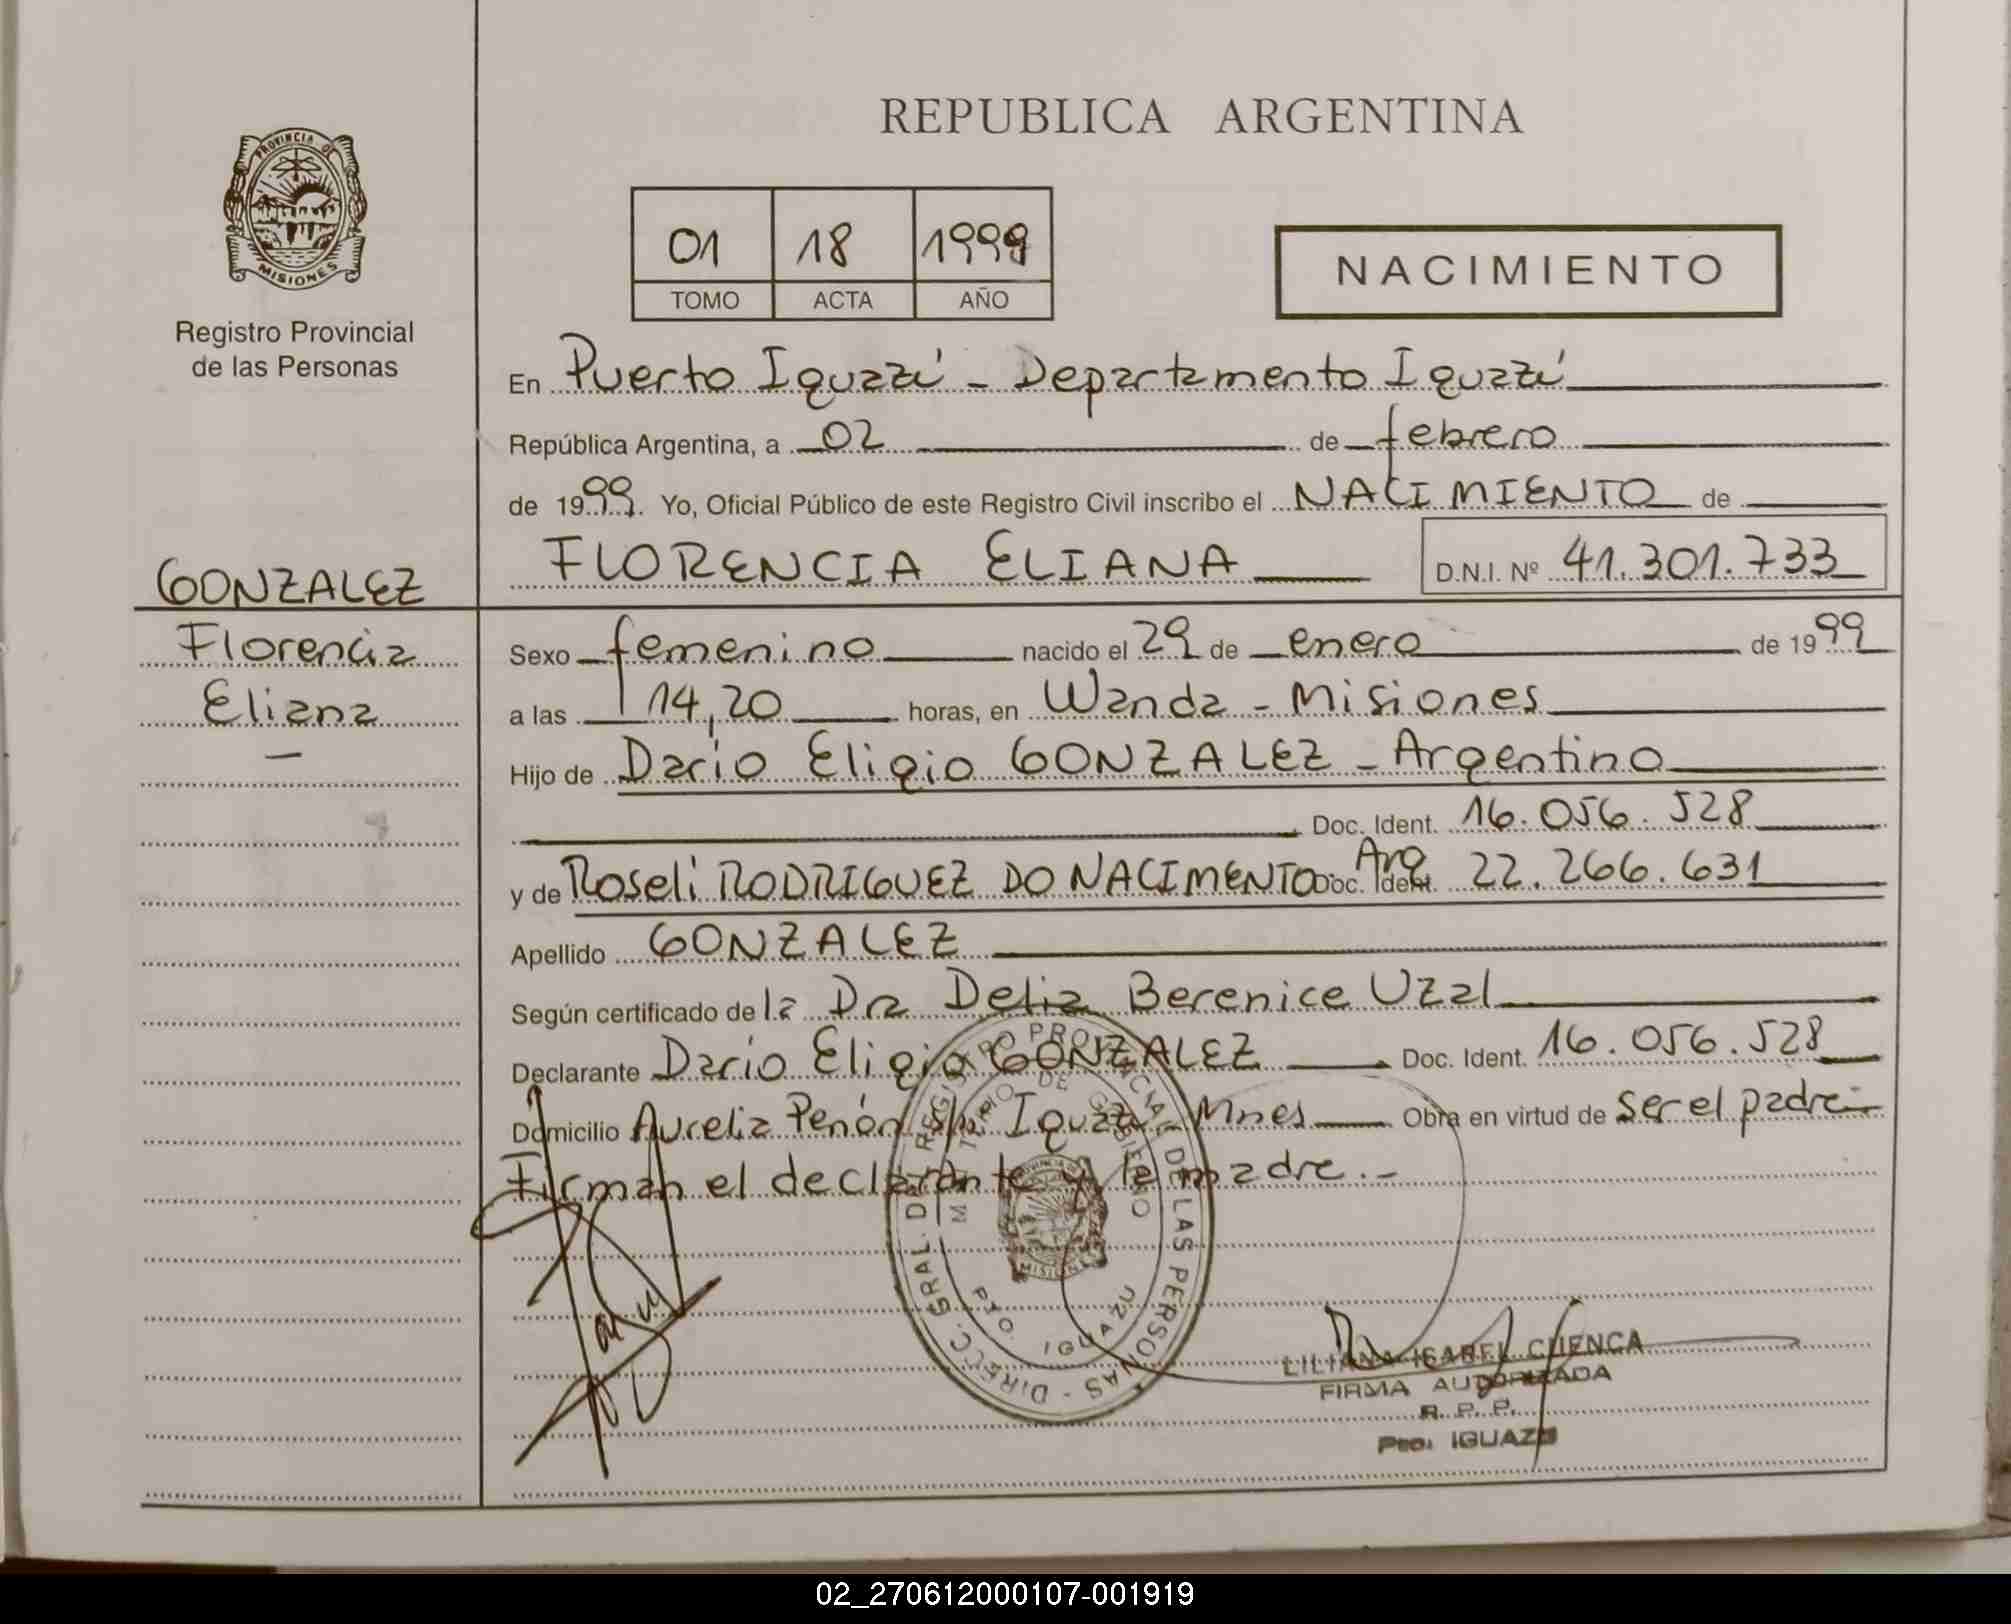 REPUBLICA ARGENTINA
PROVINCIA DE
MISIONES
Registro Provincial
de las Personas
01 18 1999
TOMO ACTA AÑO
NACIMIENTO
En Puerto Iguazú - Departamento Iguazú
República Argentina, a 02 de febrero
de 1999. Yo, Oficial Público de este Registro Civil inscribo el NACIMIENTO de
FLORENCIA ELIANA D.N.I. Nº 41.301.733
GONZALEZ
Florencia
Eliana
-
Sexo femenino nacido el 29 de enero de 1999
a las 14,20 horas, en Wanda - Misiones
Hijo de Dario Eligio GONZALEZ - Argentino
Doc. Ident. 16.056.528
y de Roseli RODRIGUEZ DO NACIMENTO Doc. Ident. Arg 22.266.631
Apellido GONZALEZ
Según certificado de la Dra Delia Berenice Uzal
Declarante Dario Eligio GONZALEZ Doc. Ident. 16.056.528
Domicilio Aurelia Penón s/n Iguazú Mnes Obra en virtud de ser el padre.-
Firman el declarante y la madre.-
DIRECC. GRAL. DEL REGISTRO PROVINCIAL DE LAS PERSONAS -
MINISTERIO DE GOBIERNO
PROVINCIA DE
MISIONES
PTO. IGUAZU
LILIANA ISABEL CUENCA
FIRMA AUTORIZADA
R. P. P.
Pto. IGUAZU
02_270612000107-001919